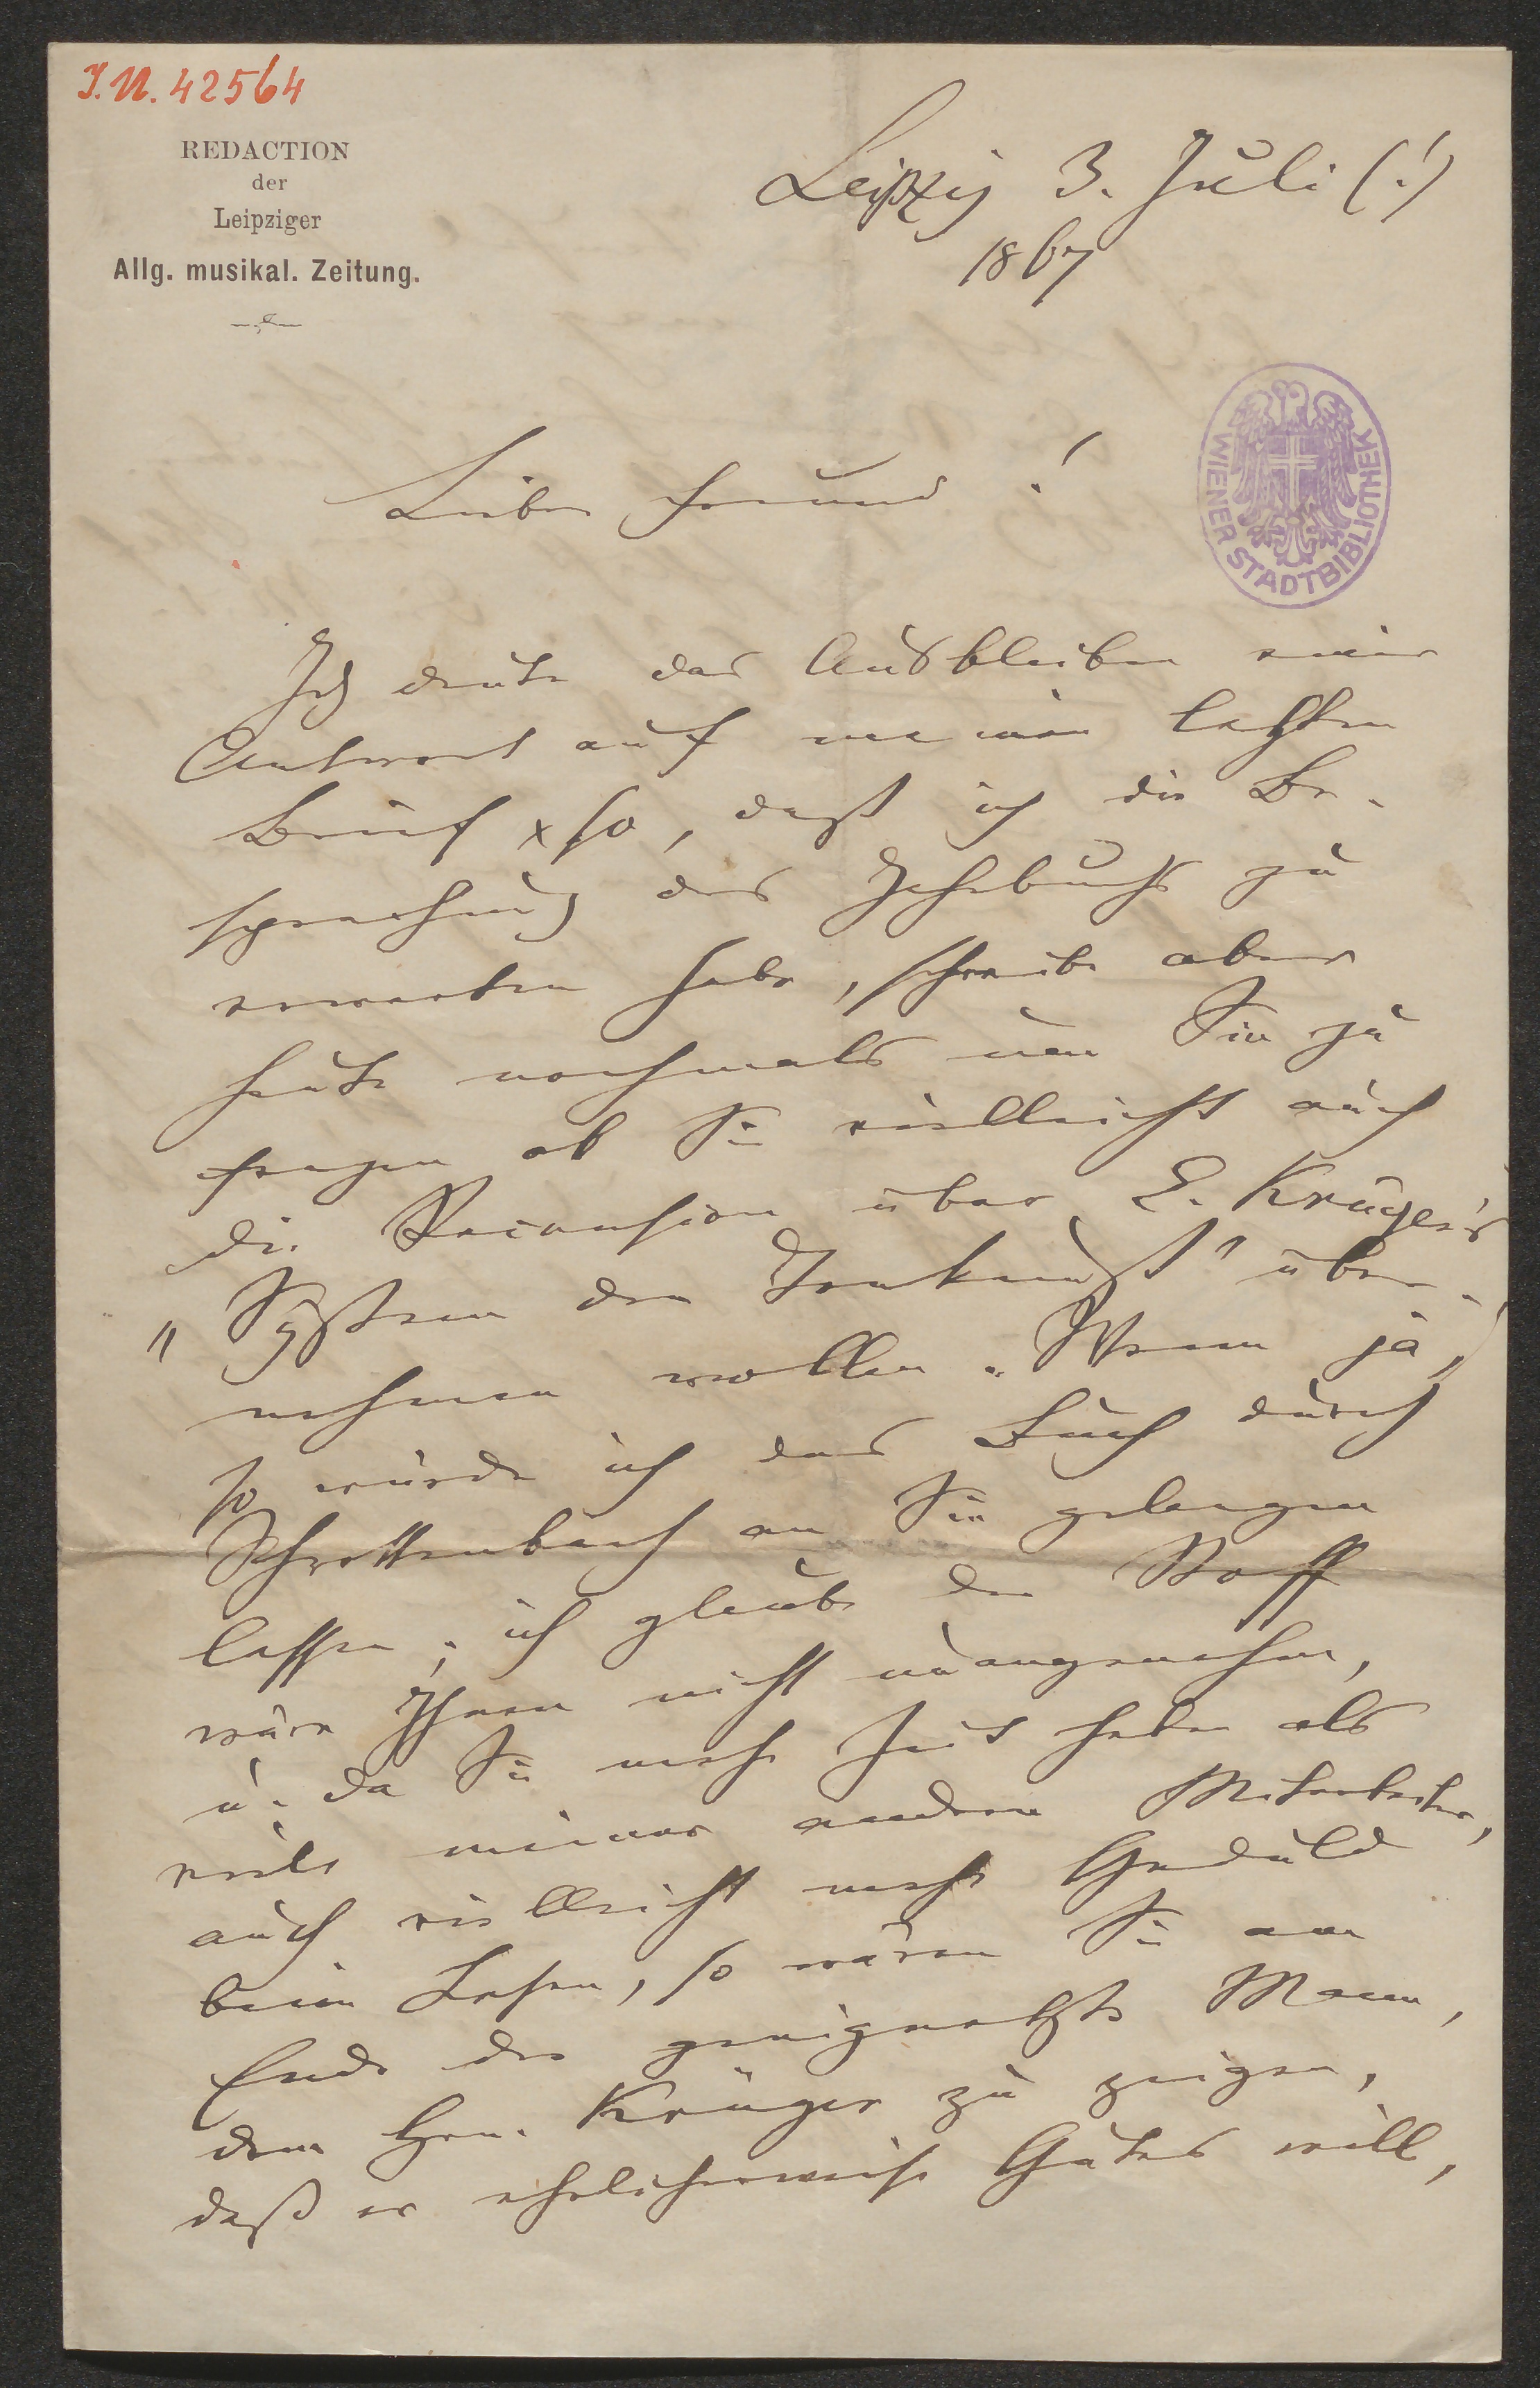 I.N. 42564
REDACTION
der
Leipziger
Allg. musikal. Zeitung.
Leipzig 3. Juli (!)
1867
WIENER STADTBIBLIOTHEK
Lieber Freund!
Ich deute das Ausbleiben einer
Antwort auf meinen letzten
Brief x so, daß ich die Be-
sprechung des Jahrbuchs zu
erwarten habe, schreibe aber
heute nochmals um Sie zu
fragen ob Sie vielleicht auch
die Recension über E. Krüger's
"System der Tonkunst" über-
nehmen wollen. Wenn ja,
so würde ich das Buch durch
Schrottenbach an Sie gelangen
lassen; ich glaube der Stoff
wäre Ihnen nicht unangenehm,
u. da Sie mehr Zeit haben als
viele meiner andern Mitarbeiter,
auch vielleicht mehr Geduld
beim Lesen, so wären Sie am
Ende der geeignetste Mann,
dem Hrn. Krüger zu zeigen,
daß er ehrlicherweise Gutes will,